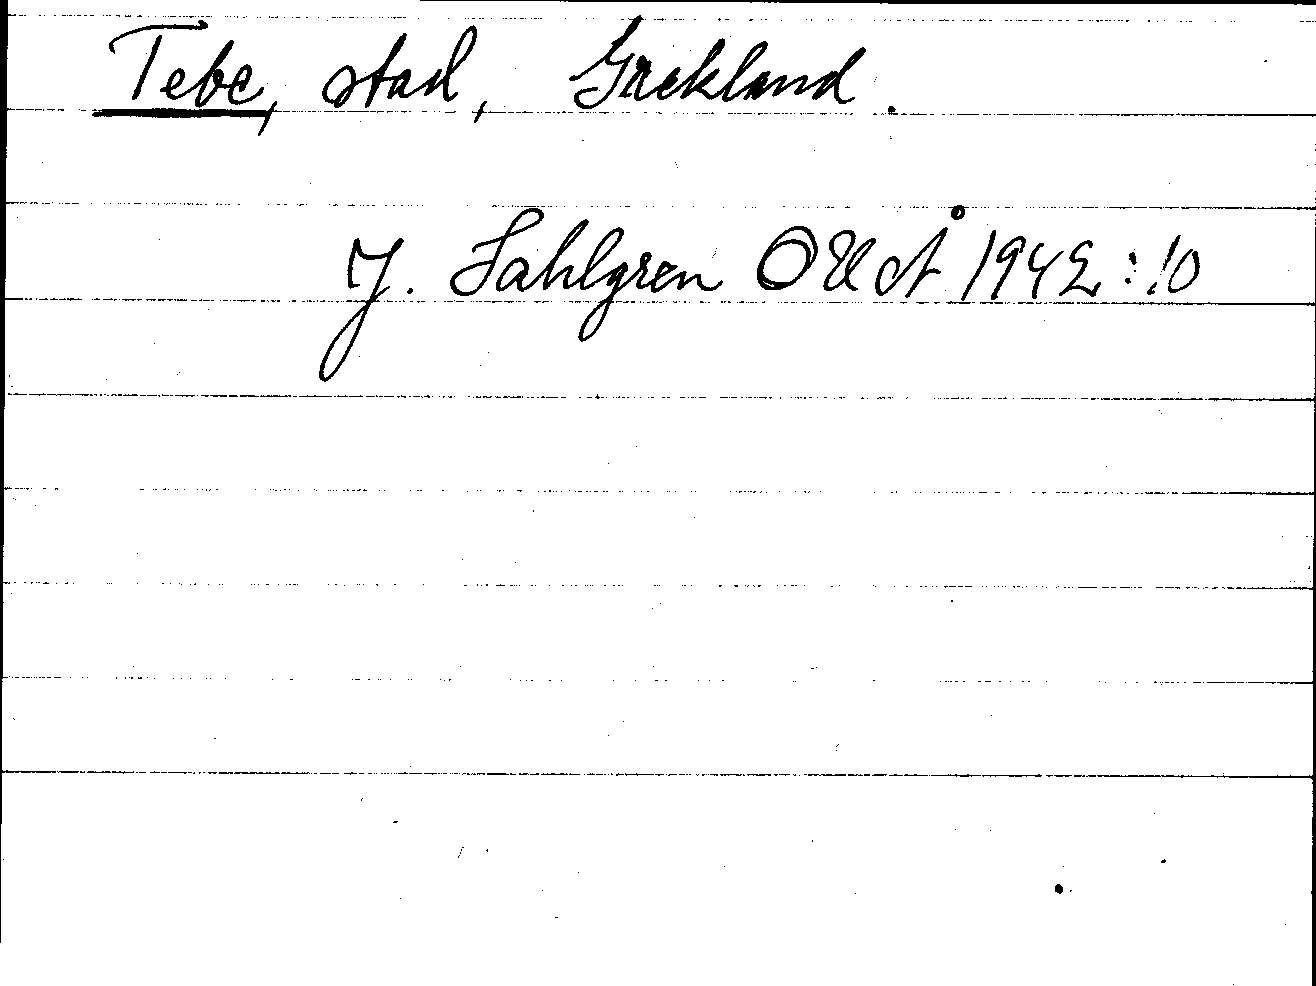 Tebe, stad, Grekland.
J. Sahlgren OUoÅ 1942:10